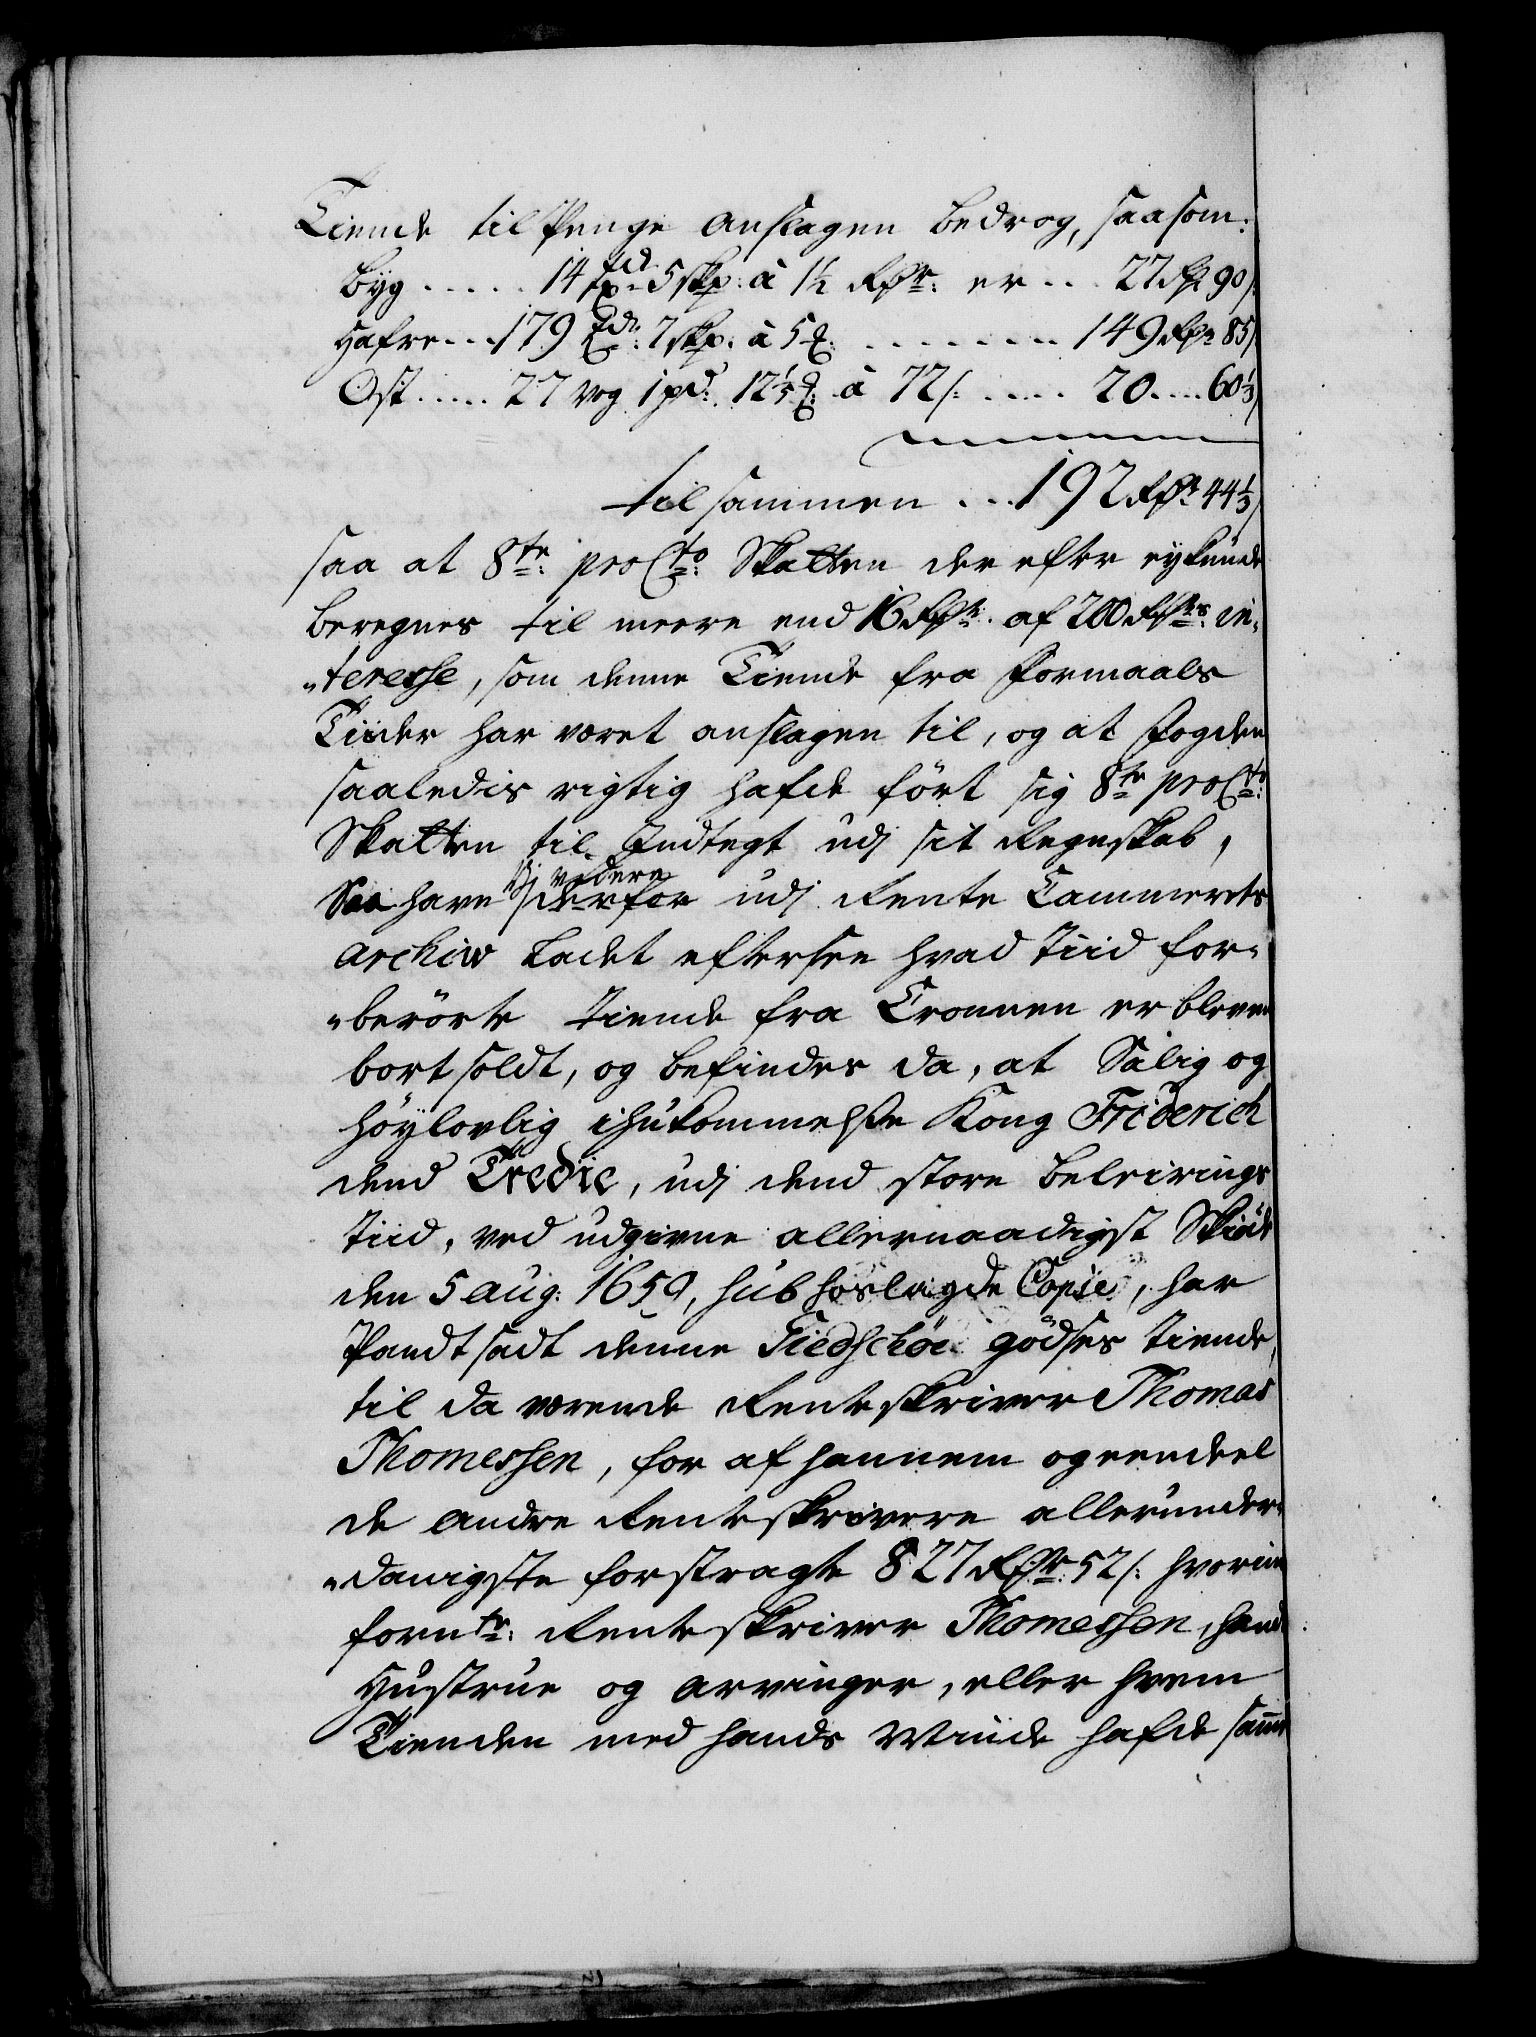 Tiende til Penge anslagen bedrog, saasom:
Byg ..... 14 Td 5 skp: à 1½ Rdr: er ... 27 Rdr 90 s:
Hafre ... 179 Tdr: 7 skp. à 5 ........ 149 Rdr 85 s
Ost ..... 27 vog 1 pd: 12⅕ à 72 s: ..... 20 .... 60⅓ s
tilsammen ... 192 Rdr 44⅓ s
saa at 8te pro Cto: Skatten der efter ey kunde
beregnes til meere end 16 Rdr: af 200 Rdrs: in„
„teresse, som denne Tiende fra formaals
Tiider har været anslagen til, og at fogden
saaledis rigtig hafde fört sig 8te pro Cto:
Skatten til Indtegt udj sit Regnskab,
Saa have Vj videre derfor udj Rente Cammerets
Archiv Ladet eftersee hvad Tiid for„
„berörte Tiende fra Cronen er bleven
bortsoldt, og befindes da, at Salig og
höylovlig ihukommelse Kong Friderich
dend Tredie, udj dend store beleirings
Tiid, ved udgivne allernaadigst Skiöde
den 5 aug: 1659, sub hoslagde Copie, har
Pandtsadt denne godses Tiende,
til da værende Renteskriver Thomas
Thomessen, for af hannem og eendeel
de andre Renteskrivere allerunder„
„danigste forstragte 827 Rdr: 52 s: hvorim
fornte: Renteskriver Thomessen, hans
Hustrue og arvinger, eller hvem
Tienden med hands Minde hafde samt